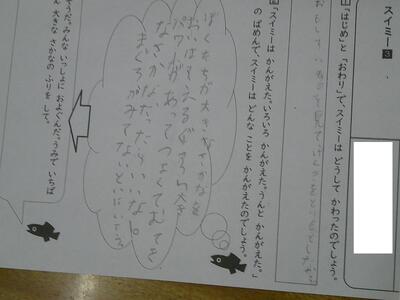 スイミー 3
「はじめ」と「おわり」で、スイミーは どうして かわったのでしょう。
おもしろいものを見てげんきをとりもどした
「スイミーは かんがえた。いろいろ かんがえた。うんと かんがえた。」
の ばめんで、スイミーは どんな ことを かんがえたのでしょう。
ぼくたちが大きなさかなを
おいはらえるぐらい大き
パワーがあってつよくて
なさかなだったらいいな。
まぐろがみてないといい
そうだ。みんな いっしょに およぐんだ。うみで いちば
ん 大きな さかなの ふりを して。